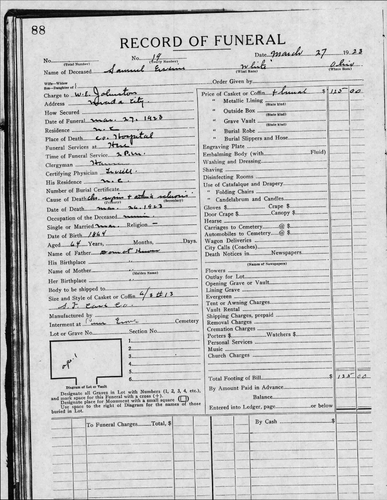 88
RECORD OF FUNERAL
No. No. 19 Date March 27 1923
(Total Number) (Yearly Number)
Name of Deceased Samuel White Ohio
Wife—Widow
Son—Daughter of
Charge to W.E. Johnston
Address Nevada City
How Secured
Date of Funeral Mar. 27. 1923
Residence N.C.
Place of Death Co. Hospital
Funeral Services at Here
Time of Funeral Service
Clergyman
Certifying Physician
His Residence N.C.
Number of Burial Certificate
Cause of Death
(Secondary)
Date of Death Mar. 26. 1923
Occupation of the Deceased
Single or Married Religion
Date of Birth 1864
Aged 64 Years, Months, Days.
Name of Father Do not Know
His Birthplace
Name of Mother
(Maiden Name)
Her Birthplace
Body to be shipped to
Size and Style of Casket or Coffin 6/3 #13
Manufactured by
Interment at Pine Grove Cemetery
Lot or Grave No. Section No.
1.
2.
3.
4.
5.
6.
Diagram of Lot or Vault
Designate all Graves in Lot with Numbers (1, 2, 3, 4, etc.),
and mark space for this Funeral with a cross (+).
Designate place for Monument with a small square
Use space to the right of Diagram for the names of those
buried in Lot.
Price of Casket or Coffin $ 135 00
" Metallic Lining
(State Kind)
" Outside Box
(State Kind)
" Grave Vault
(State Kind)
" Burial Robe
" Burial Slippers and Hose
Engraving Plate
Embalming Body (with Fluid)
Washing and Dressing
Shaving
Disinfecting Rooms
Use of Catafalque and Drapery
" Folding Chairs
" Candelabrum and Candles
Gloves $ Crape $
Door Crape $ Canopy $
Hearse
Carriages to Cemetery @ $
Automobiles to Cemetery @ $
Wagon Deliveries
City Calls (Coaches)
Death Notices in Newspapers
(Names of Newspapers)
Flowers
Outlay for Lot
Opening Grave or Vault
Lining Grave
Evergreen
Tent or Awning Charges
Vault Rental
Shipping Charges, prepaid
Removal Charges
Cremation Charges
Porters $ Watchers $
Personal Services
Music
Church Charges
Total Footing of Bill $ 135 00
By Amount Paid in Advance
Balance
Entered into Ledger, page or below
To Funeral Charges Total, $
By Cash $